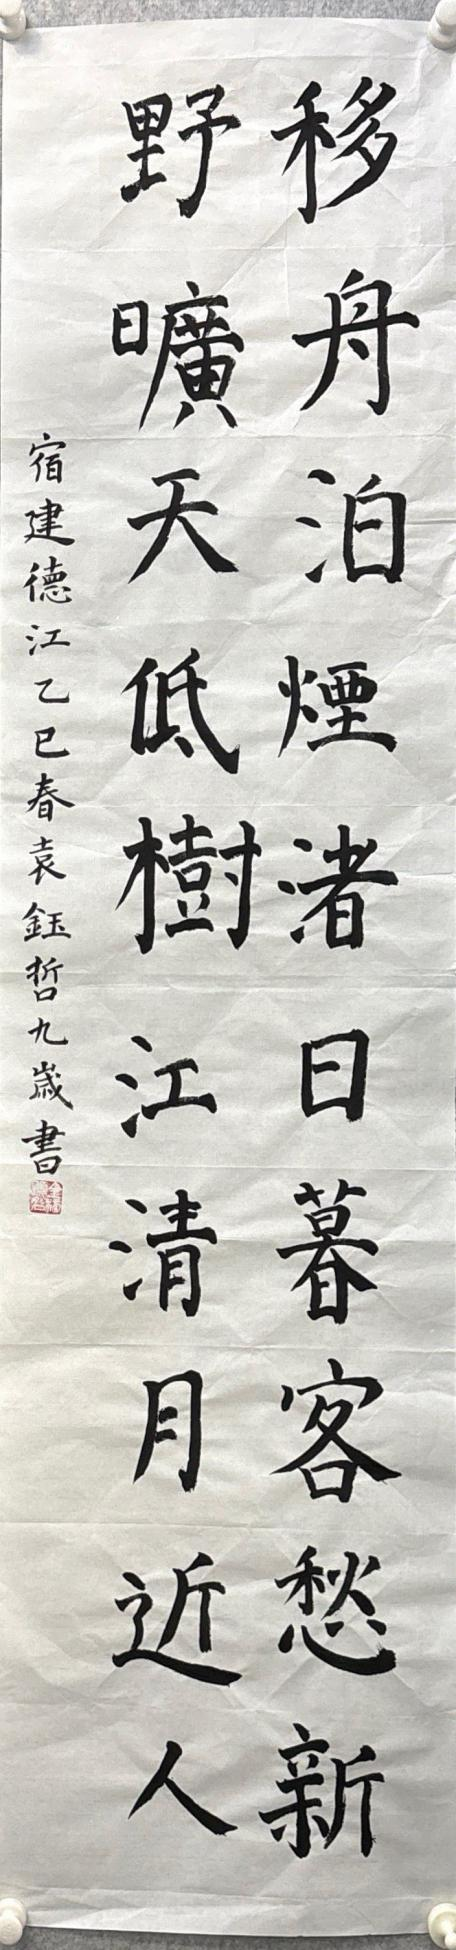 移舟泊煙渚日暮客愁新
野曠天低樹江清月近人
宿建德江乙巳春袁鈺哲九歲書